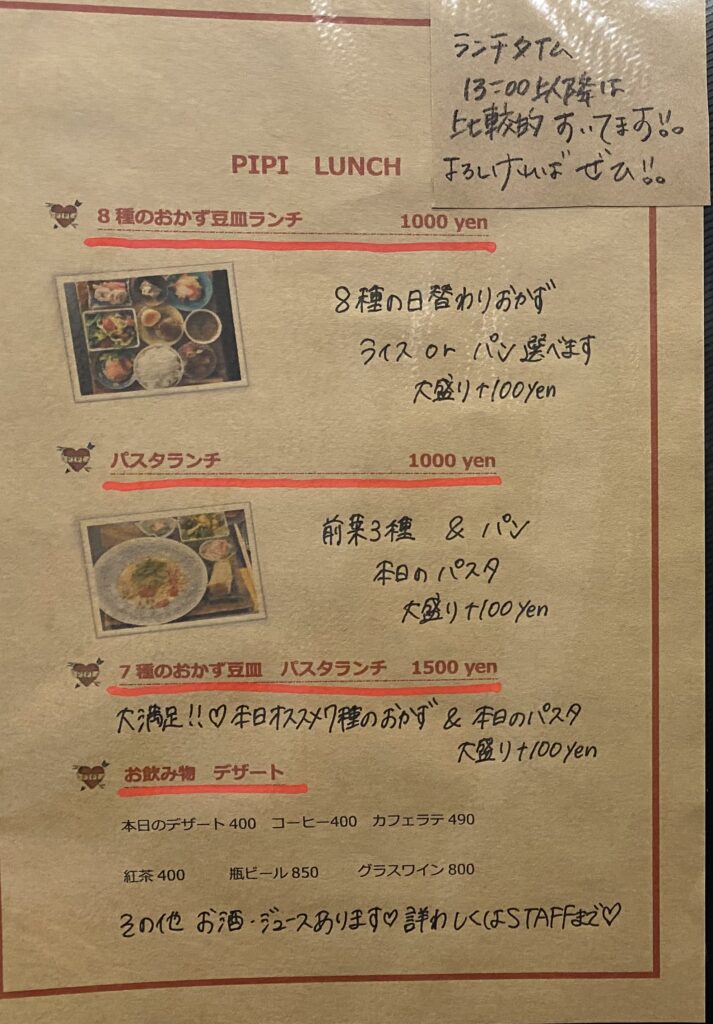 ランチタイム
13:00以降は
比較的 すいてます!!
よろしければ ぜひ!!
PIPI LUNCH
8種のおかず豆皿ランチ 1000 yen
8種の日替わりおかず
ライス or パン 選べます
大盛り+100yen
パスタランチ 1000 yen
前菜3種 & パン
本日のパスタ
大盛り+100yen
7種のおかず豆皿 パスタランチ 1500 yen
大満足!!♡本日オススメ7種のおかず & 本日のパスタ
大盛り+100yen
お飲み物 デザート
本日のデザート400 コーヒー400 カフェラテ490
紅茶400 瓶ビール850 グラスワイン800
その他 お酒・ジュースあります♡詳わしくはSTAFFまで♡